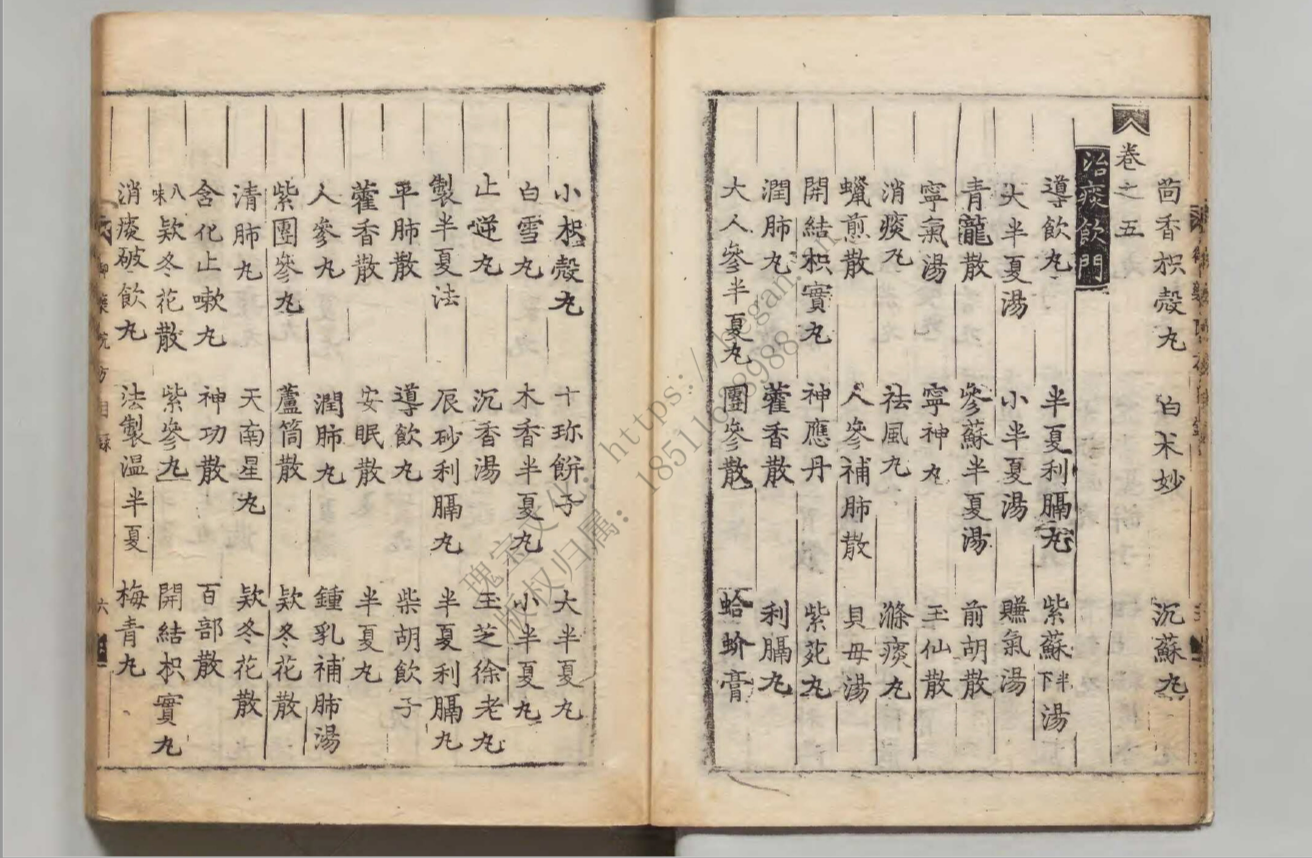 茴香枳殼丸 白朮妙 沉蘇丸
卷之五
治痰飲門
導飲丸 半夏利膈丸 紫蘇半下湯
大半夏湯 小半夏湯 賺氣湯
青龍散 參蘇半夏湯 前胡散
寧氣湯 寧神丸 玉仙散
消痰丸 祛風丸 滌痰丸
蠟煎散 人參補肺散 貝母湯
開結枳實丸 神應丹 紫菀丸
潤肺丸 藿香散 利膈丸
大人參半夏丸 團參散 蛤蚧膏
小枳殼丸 十珎餅子 大半夏丸
白雪丸 木香半夏丸 小半夏丸
止逆丸 沉香湯 玉芝徐老丸
製半夏法 辰砂利膈丸 半夏利膈丸
平肺散 導飲丸 柴胡飲子
藿香散 安眠散 半夏丸
人參丸 潤肺丸 鍾乳補肺湯
紫團參丸 蘆筒散 欵冬花散
清肺丸 天南星丸 欵冬花散
含化止嗽丸 神功散 百部散
八味欵冬花散 紫參丸 開結枳實丸
消痰破飲丸 法製温半夏 梅青丸
御藥院方目録 六
瑰宝文化：https://hegan
版权归属：